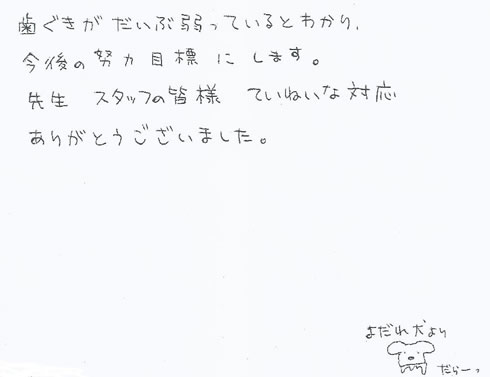 歯ぐきがだいぶ弱っているとわかり、
今後の努力目標にします。
先生 スタッフの皆様 ていねいな対応
ありがとうございました。
よだれ犬より
だらーっ